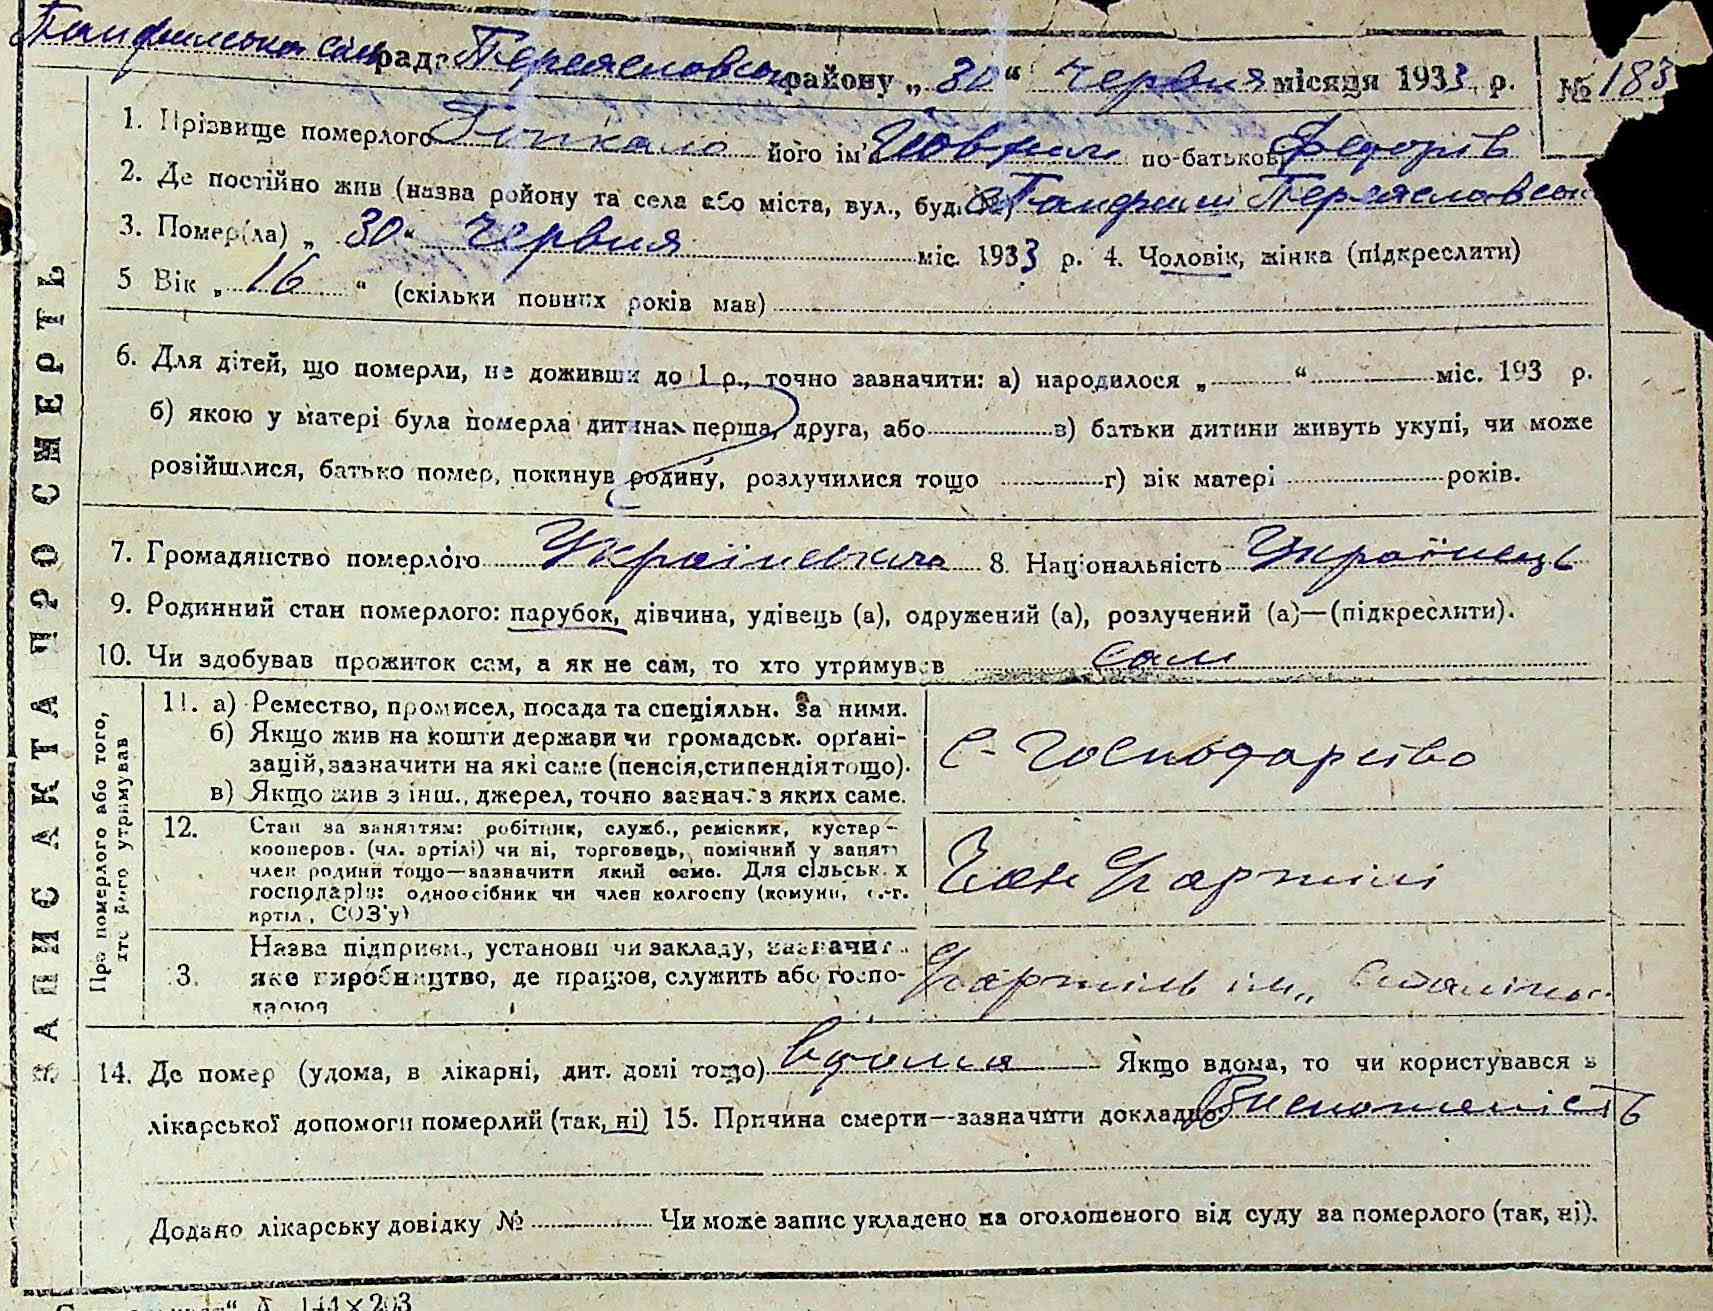 Панфилська сільрада Переяславськ району „30“ червня місяця 1933 р. № 183
1. Прізвище померлого його ім'я по-батькові Федорів
2. Де постійно жив (назва району та села або міста, вул., буд. №) с. Панфили Переяславськ
3. Помер(ла) „30“ червня міс. 1933 р. 4. Чоловік, жінка (підкреслити)
5 Вік „16“ (скільки повних років мав)
6. Для дітей, що померли, не доживши до 1 р., точно зазначити: а) народилося „ “ міс. 193 р.
б) якою у матері була померла дитина: перша, друга, або в) батьки дитини живуть укупі, чи може
розійшлися, батько помер, покинув родину, розлучилися тощо г) вік матері років.
7. Громадянство померлого 8. Національність Українець
9. Родинний стан померлого: парубок, дівчина, удівець (а), одружений (а), розлучений (а)—(підкреслити).
10. Чи здобував прожиток сам, а як не сам, то хто утримував сам
Про померлого або того, хто його утримував
11. а) Ремество, промисел, посада та спеціяльн. за ними.
б) Якщо жив на кошти держави чи громадськ. орґані-
зацій, зазначити на які саме (пенсія, стипендія тощо).
в) Якщо жив з інш., джерел, точно зазнач. з яких саме.
С-господарство
12. Стан за заняттям: робітник, служб., реміскик, кустар-
кооперов. (чл. артілі) чи ні, торговець, помічний у занят.
член родини тощо—зазначити який саме. Для сільськ. х
господарів: одноосібник чи член колгоспу (комуни, с.-г.
артіл., СОЗ'у)
Член артілі
3. Назва підприєм., установи чи закладу, зазначит.
яке виробництво, де працюв, служить або госпо-
дарюв
артіль ім„ Сталіна
14. Де помер (удома, в лікарні, дит. домі тощо) вдома Якщо вдома, то чи користувався з
лікарської допомоги померлий (так, ні) 15. Причина смерти—зазначити докладно Виснаженість
Додано лікарську довідку № Чи може запис укладено на оголошеного від суду за померлого (так, ні).
ЗАПИС АКТА ПРО СМЕРТЬ
А 144×203